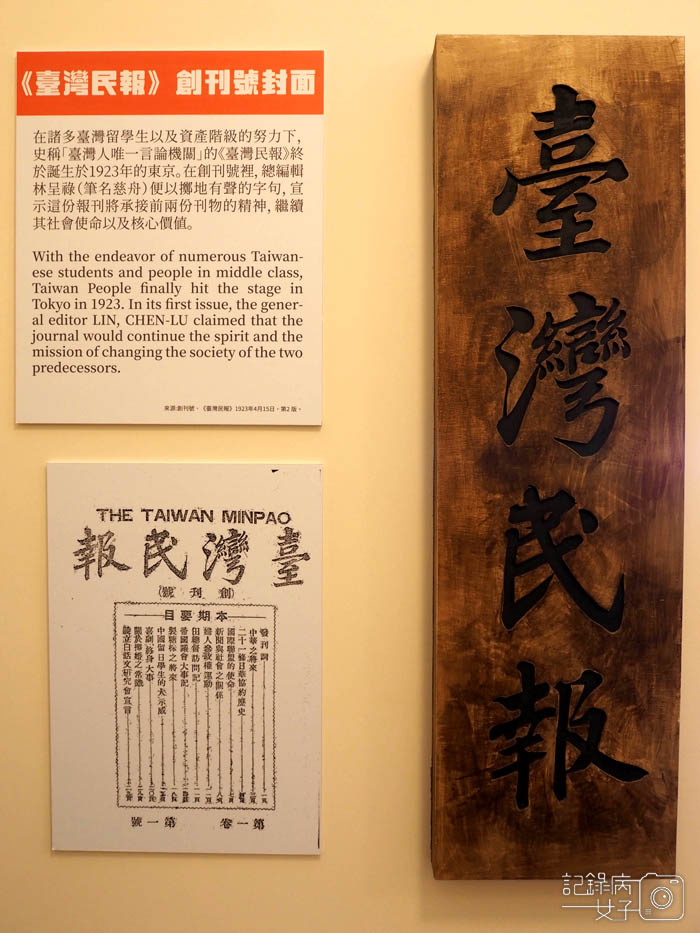 《臺灣民報》 創刊號封面
在諸多臺灣留學生以及資產階級的努力下，
史稱「臺灣人唯一言論機關」的《臺灣民報》終
於誕生於1923年的東京。在創刊號裡，總編輯
林呈祿（筆名慈舟）便以擲地有聲的字句，宣
示這份報刊將承接前兩份刊物的精神，繼續
其社會使命以及核心價值。
With the endeavor of numerous Taiwan-
ese students and people in middle class,
Taiwan People finally hit the stage in
Tokyo in 1923. In its first issue, the gener-
al editor LIN, CHEN-LU claimed that the
journal would continue the spirit and the
mission of changing the society of the two
predecessors.
來源:創刊號，《臺灣民報》1923年4月15日，第2版。
THE TAIWAN MINPAO
臺灣民報
(創刊號)
本期要目
發刊詞
中華之將來
二十一條日華協約歷史
國際聯盟的使命
新聞與社會之關係
婦人參政權運動
田總督訪問記
帝國議會大事記
製糖株之將來
中國留日學生的大示威
喜劇 終身大事
關於椰燈之常識
設立白話文研究會宣言
第一卷 第一號
臺灣民報
記錄病女子